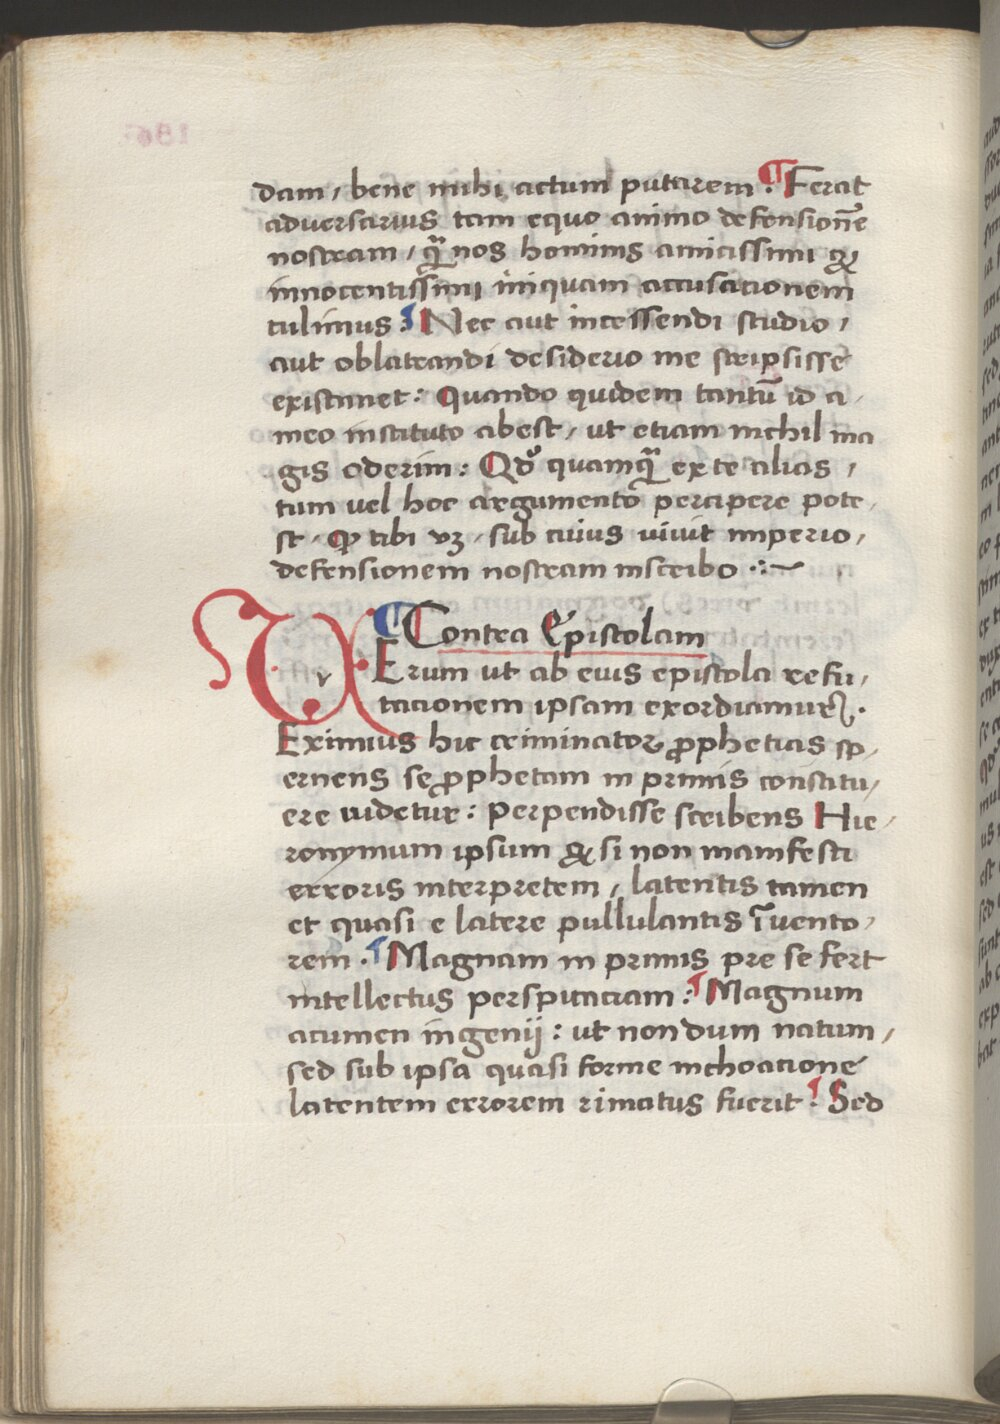 dam, bene mihi actum putarem. ¶ Ferat
adversarius tam equo animo defensionē
nostram, qͣ nos hominis amicissimi &
innocentissimi iniquam accusacionem
tulimus. ¶ Nec aut incessendi studio,
aut oblatrandi desiderio me scripsisse
existimet: Quando quidem tantū id a
meo instituto abest, ut etiam nichil ma
gis oderim: Qdͦ quamqͣ ex te alias,
tum vel hoc argumento percipere pote,
st, ꝙ tibi vꝫ, sub cuius vivit imperio,
defensionem nostram inscribo ·:~
¶ Contra Epistolam
VErum ut ab eius epistola refu,
tacionem ipsam exordiamur.
Eximius hic criminator ꝓphetias sp,
ernens se ꝓphetam in primis constitu,
ere videtur: Perpendisse scribens Hie,
ronymum ipsum & si non manifesti
erroris interpretem, latentis tamen
et quasi e latere pullulantis īvento,
rem. ¶ Magnam in primis pre se fert
intellectus perspicaciam: ¶ Magnum
acumen ingenij: ut nondum natum,
sed sub ipsa quasi forme inchoacione
latentem errorem rimatus fuerit. ¶ Sed